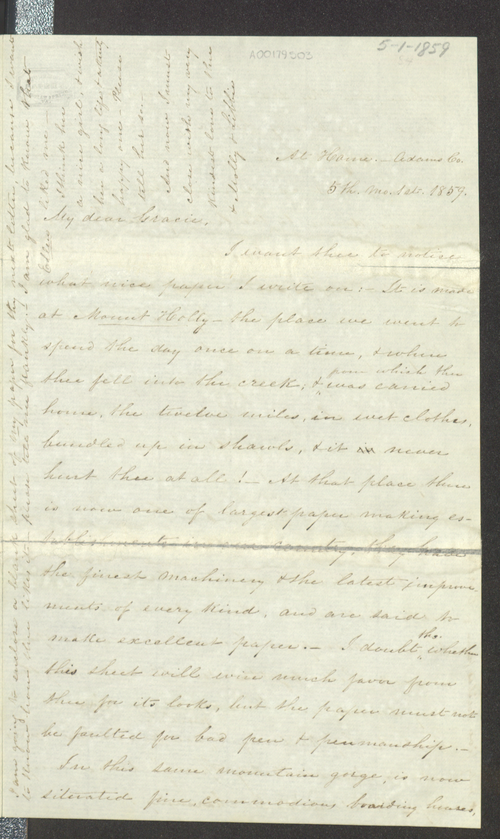 A00179503
5-1-1859
At Home. - Adams Co.
5th. Mo. 1st. 1859.
My dear Gracie,
I want thee to notice
what nice paper I write on:- It is made
at Mount Holly - the place we went to
spend the day once on a time, & where
thee fell into the creek, & from which thee
was carried
home, the twelve miles, in wet clothes,
bundled up in shawls, & it never
hurt thee at all! - At that place there
is now one of largest paper making es-
tablishments in our country, they have
the finest machinery & the latest improve
ments of every kind, and are said to
make excellent paper. - I doubt, tho', whether
this sheet will win much favor from
thee for its looks, but the paper must not
be faulted for bad pen & penmanship. -
In this same mountain gorge, is now
situated fine, commodious boarding houses,
I am going to enclose a blank sheet of my paper for thy next letter, because I want
to know how thee likes it. Please tell me frankly. I am glad to know that
Ellen liked me -
I think her
a nice girl, & wish
her a long life &
happy one - Please
tell her so.
And now I must
close with my very
kindest love to thee
& Molly & Libbie